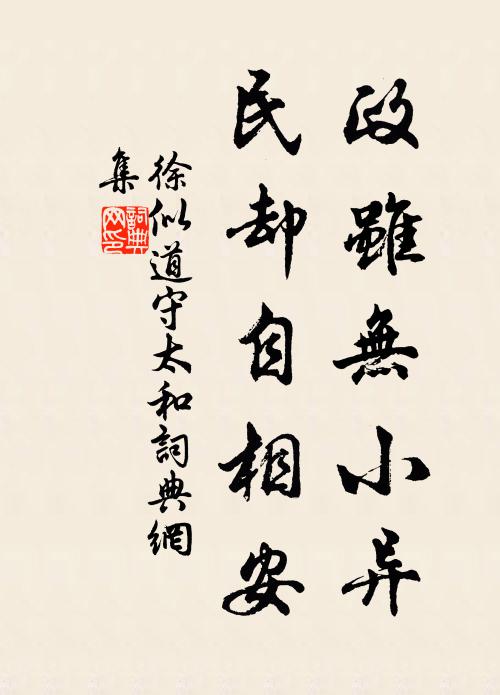 政雖無小异
民却自相安
徐似道守太和詞典網
集
詞典網